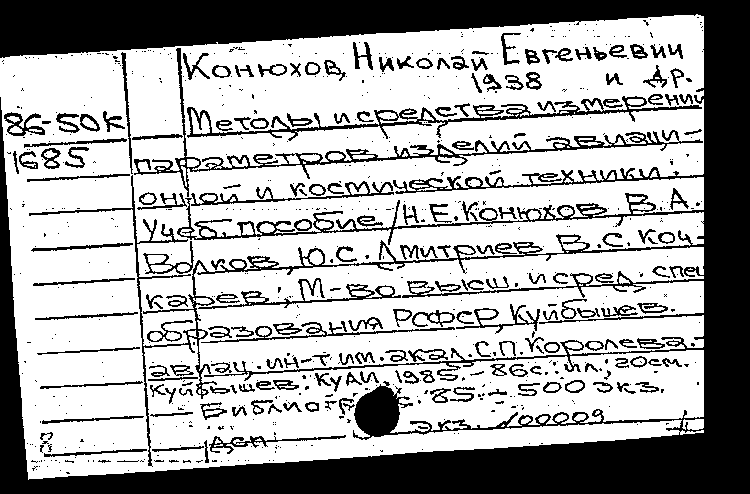 Конюхов, Николай Евгеньевич
1938 и др.
86-50к Методы и средства измерений
1685 параметров изделий авиаци-
онной и космической техники:
Учеб. пособие / Н.Е. Конюхов, В.А.
Волков, Ю.С. Дмитриев, В.С. Коч-
карев; М-во высш. и сред. спец
образования РСФСР, Куйбышев.
авиац. ин-т им. акад. С.П. Королева.-
Куйбышев: КуАИ, 1985.- 86с.: ил.; 20см.
Библиогр с. 85.- 500 экз.
деп экз. №00009